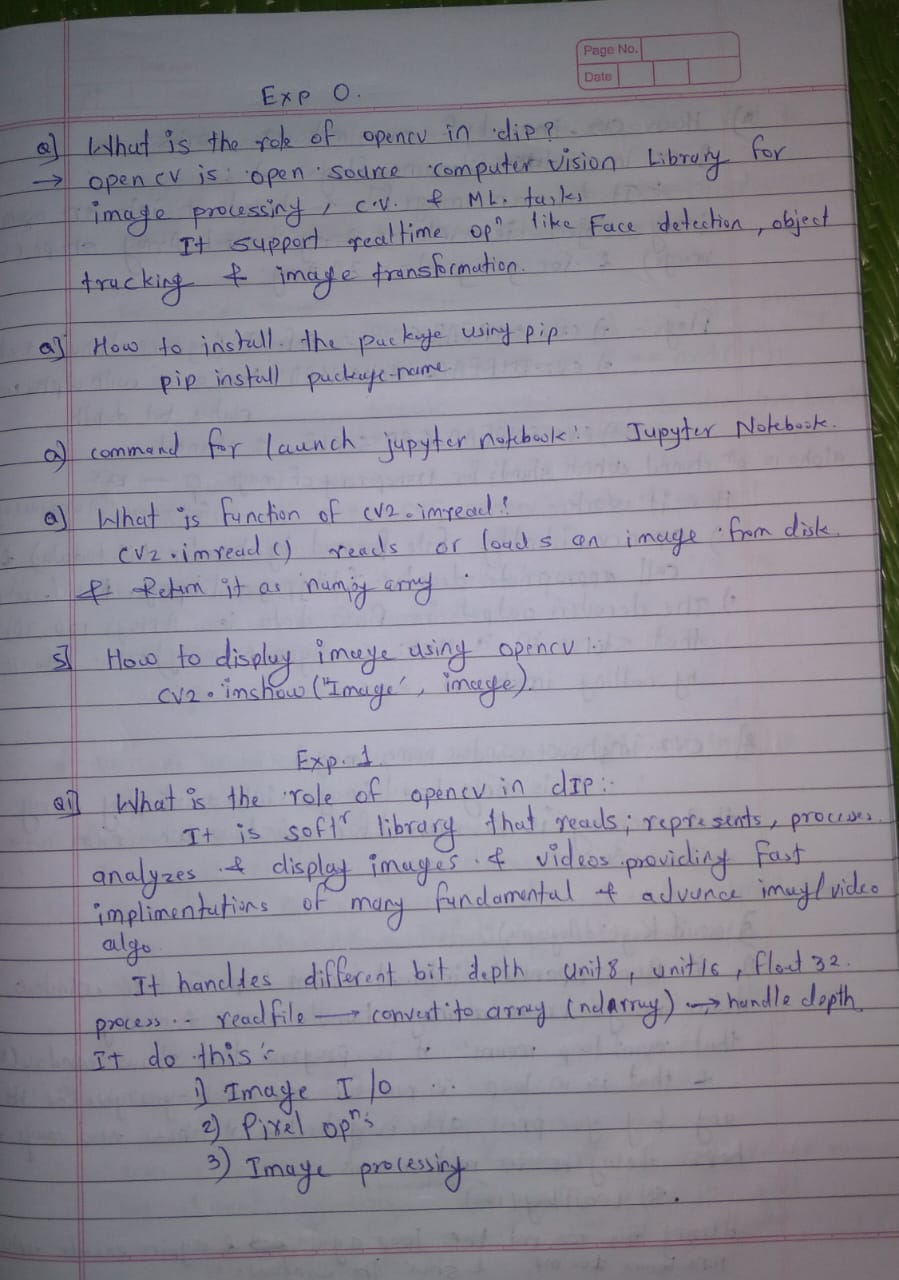 Page No.
Date
Exp 0.
Q] What is the role of opencv in dip?
→ open cv is open source computer vision Library for
image processing, c.v. & ML. tasks
It support realtime opⁿ like Face detection, object
tracking & image transformation.
Q] How to install the package using pip.
pip install package-name
Q] command for launch jupyter notebook: Jupyter Notebook.
Q] What is function of cv2.imread?
cv2.imread() reads or loads an image from disk
& Return it as numpy array
5] How to display image using opencv :
cv2.imshow("Image", image).
Exp. 1
Q1] What is the role of opencv in dIP :-
It is softʳ library that reads, represents, processes,
analyzes & display images & videos providing Fast
implimentations of many fundamental & advance imag/video
algo
It handles different bit depth unit8, unit16, float 32.
process .. read file → convert to array (ndarray) → handle depth
It do this :-
1) Image I/O
2) Pixel opⁿs
3) Image processing